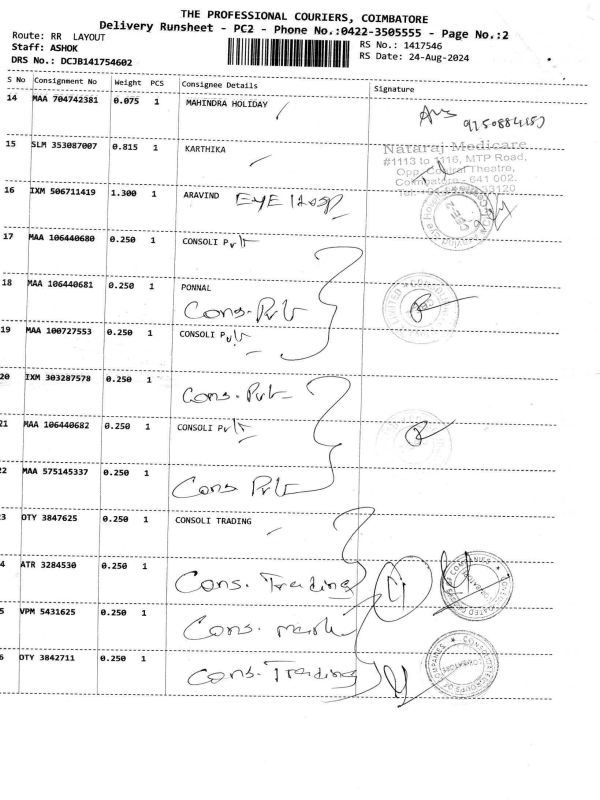 THE PROFESSIONAL COURIERS, COIMBATORE
Delivery Runsheet - PC2 - Phone No.:0422-3505555 - Page No.:2
Route: RR LAYOUT
Staff: ASHOK
DRS No.: DCJB141754602
RS No.: 1417546
RS Date: 24-Aug-2024
S No Consignment No Weight PCS Consignee Details Signature
14 MAA 704742381 0.075 1 MAHINDRA HOLIDAY
15 SLM 353087007 0.815 1 KARTHIKA
Nataraj Medicare
#1113 to 1116, MTP Road,
Opp. Central Theatre,
Coimbatore - 641 002.
16 IXM 506711419 1.300 1 ARAVIND EYE Hosp
17 MAA 106440680 0.250 1 CONSOLI Pvlt
18 MAA 106440681 0.250 1 PONNAL
Cons. Pvlt
19 MAA 100727553 0.250 1 CONSOLI Pvlt
20 IXM 303287578 0.250 1
Cons. Pvlt
21 MAA 106440682 0.250 1 CONSOLI Pvlt
22 MAA 575145337 0.250 1
Cons Pvlt
3 OTY 3847625 0.250 1 CONSOLI TRADING
4 ATR 3284530 0.250 1
Cons. Trading
5 VPM 5431625 0.250 1
Cons. mark
6 OTY 3842711 0.250 1
Cons. Trading